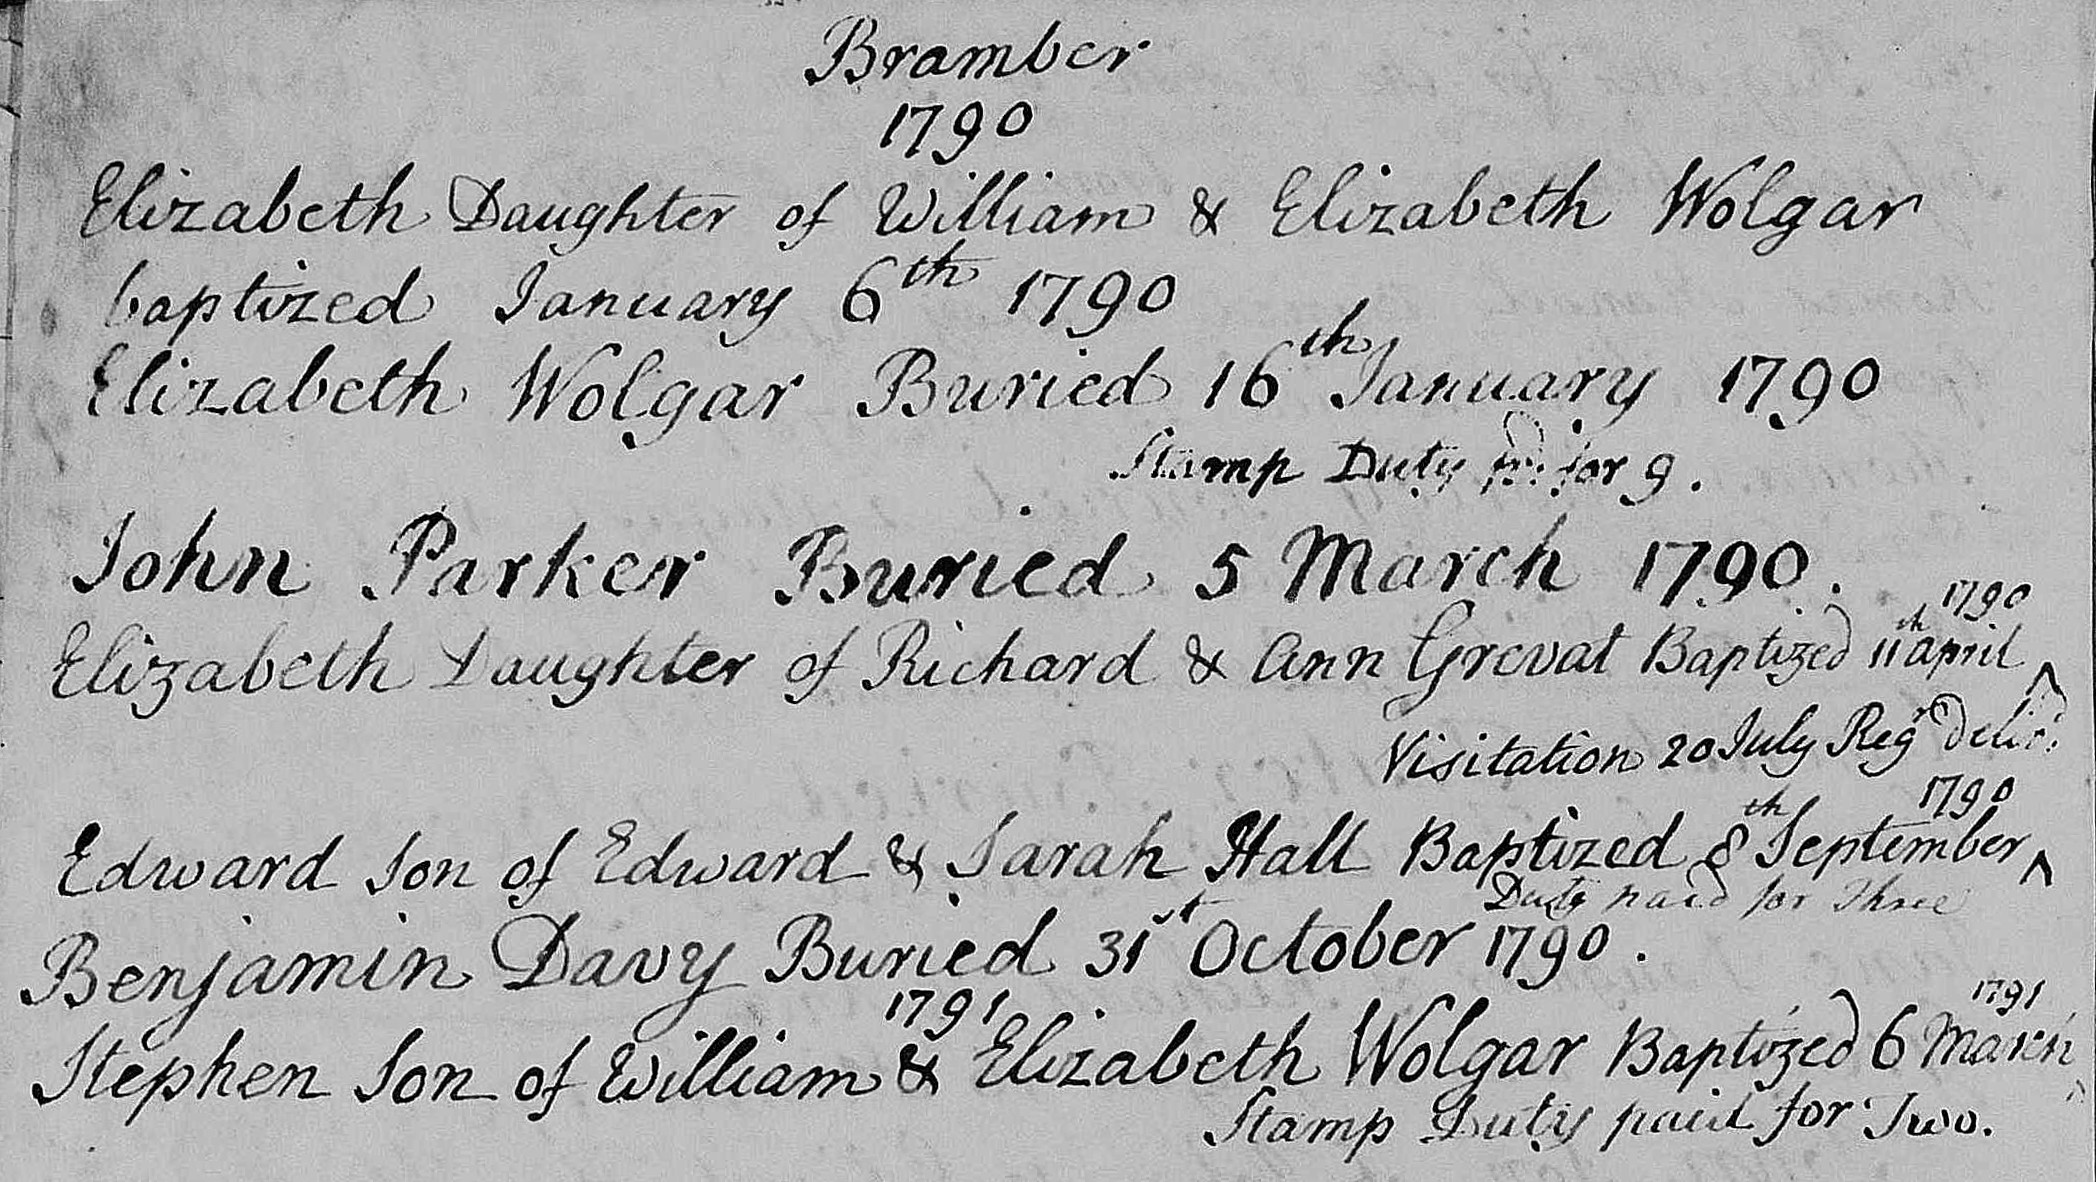 Bramber
1790
Elizabeth Daughter of William & Elizabeth Wolgar
baptized January 6th 1790
Elizabeth Wolgar Buried 16th January 1790
Stamp Duty pd. for 9.
John Parker Buried 5 March 1790.
Elizabeth Daughter of Richard & Ann Grevat Baptized 11th april ^ 1790
Visitation 20 July Regr Delivd
Edward Son of Edward & Sarah Hall Baptized 8th September ^ 1790
Duty paid for Three
Benjamin Davy Buried 31st October 1790.
1791
Stephen Son of William & Elizabeth Wolgar Baptized 6 March ^ 1791
Stamp Duty paid for Two.